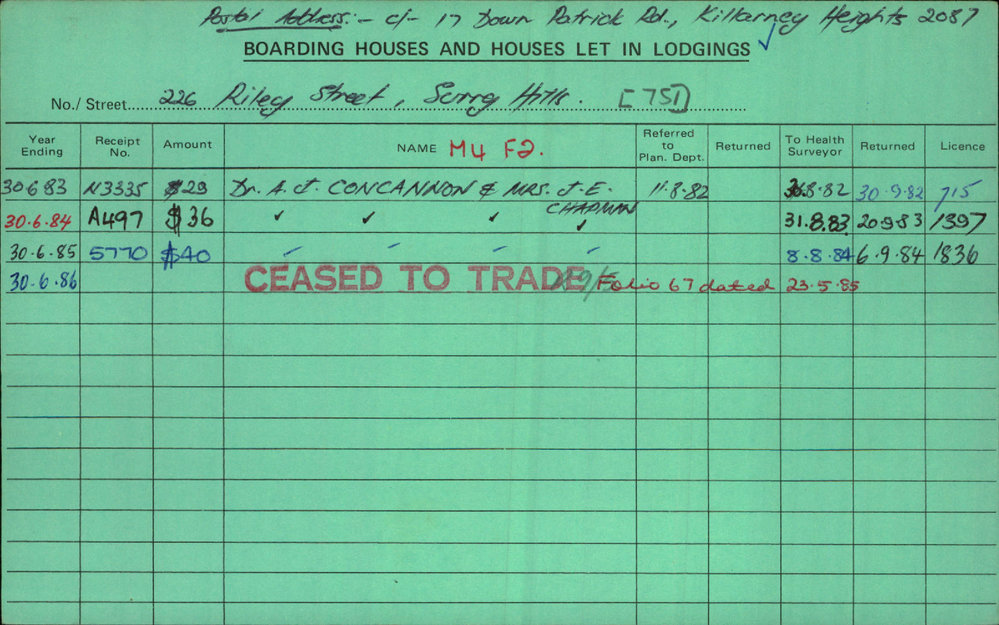 Postal Address:- c/- 17 Down Patrick Rd., Killarney Heights 2087
BOARDING HOUSES AND HOUSES LET IN LODGINGS
No./ Street 226 Riley Street, Surry Hills. [751]
Year Ending Receipt No. Amount NAME M4 F2. Referred to Plan. Dept. Returned To Health Surveyor Returned Licence
30.6.83 N3335 $29 Dr. A. J. CONCANNON & MRS. J. E. CHAPMAN 11.8.82 8.82 30.9.82 715
30.6.84 A497 $36 ✓ ✓ ✓ ✓ 31.8.83 20.9.83 1397
30.6.85 5770 $40 8.8.84 6.9.84 1836
30.6.86 CEASED TO TRADE Folio 67 dated 23.5.85